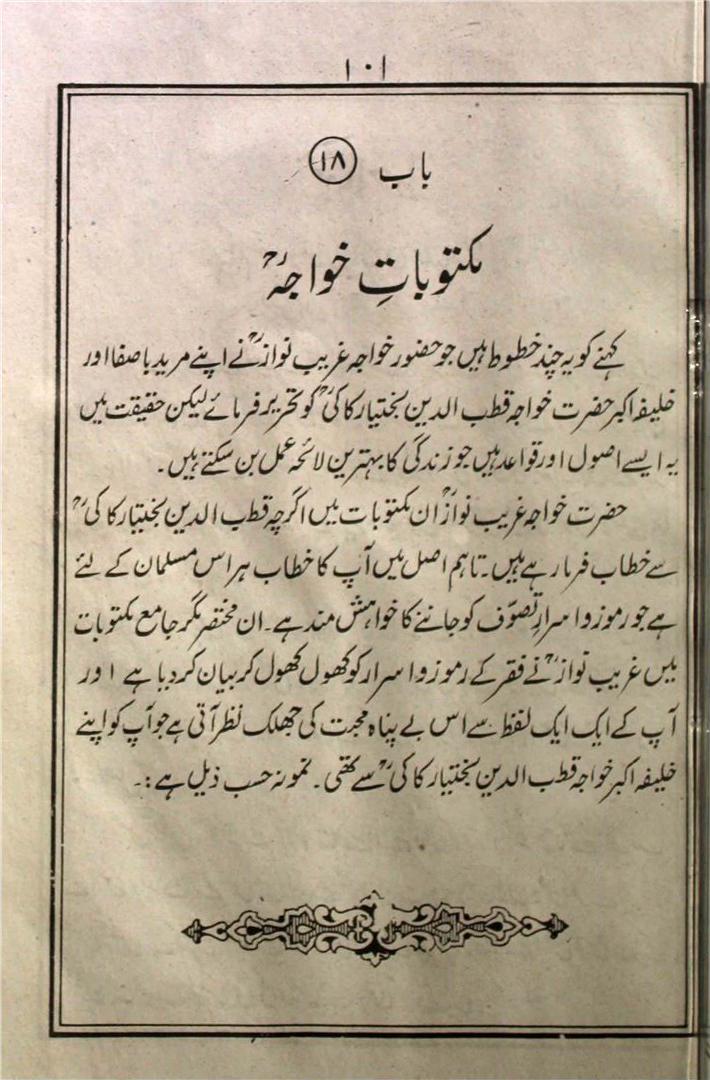 ۱۰۱
باب ۱۸
مکتوباتِ خواجہؒ
کہنے کو یہ چند خطوط ہیں جو حضور خواجہ غریب نوازؒ نے اپنے مرید باصفا اور
خلیفہ اکبر حضرت خواجہ قطب الدین بختیار کاکیؒ کو تحریر فرمائے لیکن حقیقت میں
یہ ایسے اصول اور قواعد ہیں جو زندگی کا بہترین لائحہ عمل بن سکتے ہیں۔
حضرت خواجہ غریب نوازؒ ان مکتوبات میں اگرچہ قطب الدین بختیار کاکیؒ
سے خطاب فرما رہے ہیں۔ تاہم اصل میں آپ کا خطاب ہر اس مسلمان کے لئے
ہے جو رموز و اسرارِ تصوّف کو جاننے کا خواہش مند ہے۔ ان مختصر مگر جامع مکتوبات
میں غریب نوازؒ نے فقر کے رموز و اسرار کو کھول کھول کر بیان کر دیا ہے اور
آپ کے ایک ایک لفظ سے اس بے پناہ محبت کی جھلک نظر آتی ہے جو آپ کو اپنے
خلیفہ اکبر خواجہ قطب الدین بختیار کاکیؒ سے تھی۔ نمونہ حسب ذیل ہے:۔